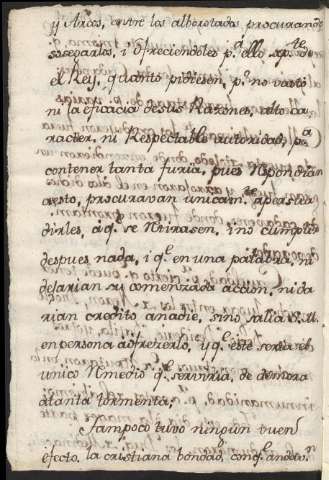 y Arcos, entre los alborotados procurando
sosegarlos, i ofreciendoles p.r ello
el Rey, quanto pidiesen, p.o no vastó
ni la eficacia de sus Razones, alto ca-
racter, ni Respectable autoridad, p.a
contener tanta furia, pues Respondian
a esto, procuravan unicam.te persua
dirles, a q.e se Retirasen, sin cumplir
despues nada, i q.e en una palabra, ni
dejarian su comenzada accion, ni da
rian credito a nadie, si no salia S.M.
en persona a ofrecerlo, y q.e este seria el
unico Remedio q.e serviria, de demora
a tanta tormenta;
Tampoco tuvo ningun buen
efecto, la cristiana bondad, con q.e